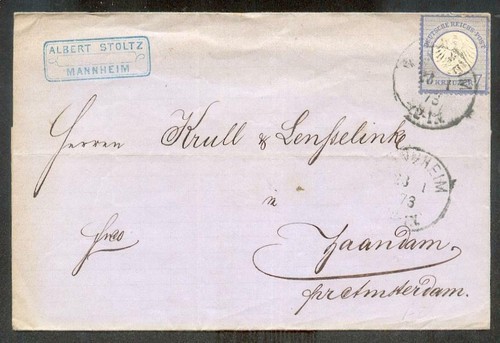 ALBERT STOLTZ
MANNHEIM
DEUTSCHE REICHS-POST
Herren Krull & Lensselink
in
Zaandam
frco
pr Amsterdam.
NHEIM
23 I
73